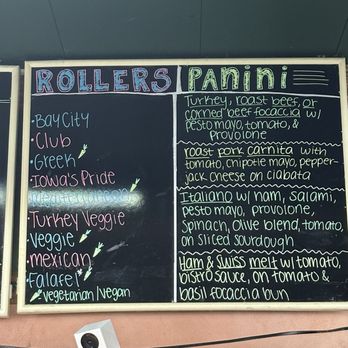 ROLLERS
• Bay City
• Club
• Greek
• Iowa's Pride
• Mediterranean
• Turkey Veggie
• Veggie
• mexican
• Falafel
vegetarian/vegan
Panini
Turkey, roast beef, or
corned beef focaccia w/
pesto mayo, tomato, &
provolone
roast pork carnita with
tomato, chipotle mayo, pepper-
jack cheese on ciabata
Italiano w/ ham, salami,
pesto mayo, provolone,
spinach, olive blend, tomato,
on sliced sourdough
Ham & swiss melt w/ tomato,
bistro sauce, on tomato &
basil focaccia bun